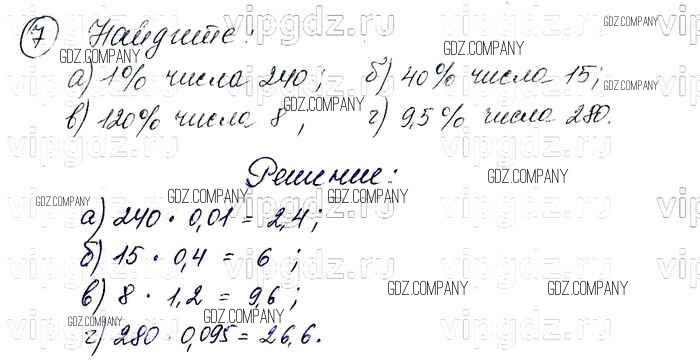 7 Найдите:
а) 1% числа 240; б) 40% числа 15;
в) 120% числа 8; г) 9,5% числа 280.
Решение:
а) 240 · 0,01 = 2,4;
б) 15 · 0,4 = 6;
в) 8 · 1,2 = 9,6;
г) 280 · 0,095 = 26,6.
vipgdz.ru
GDZ.COMPANY